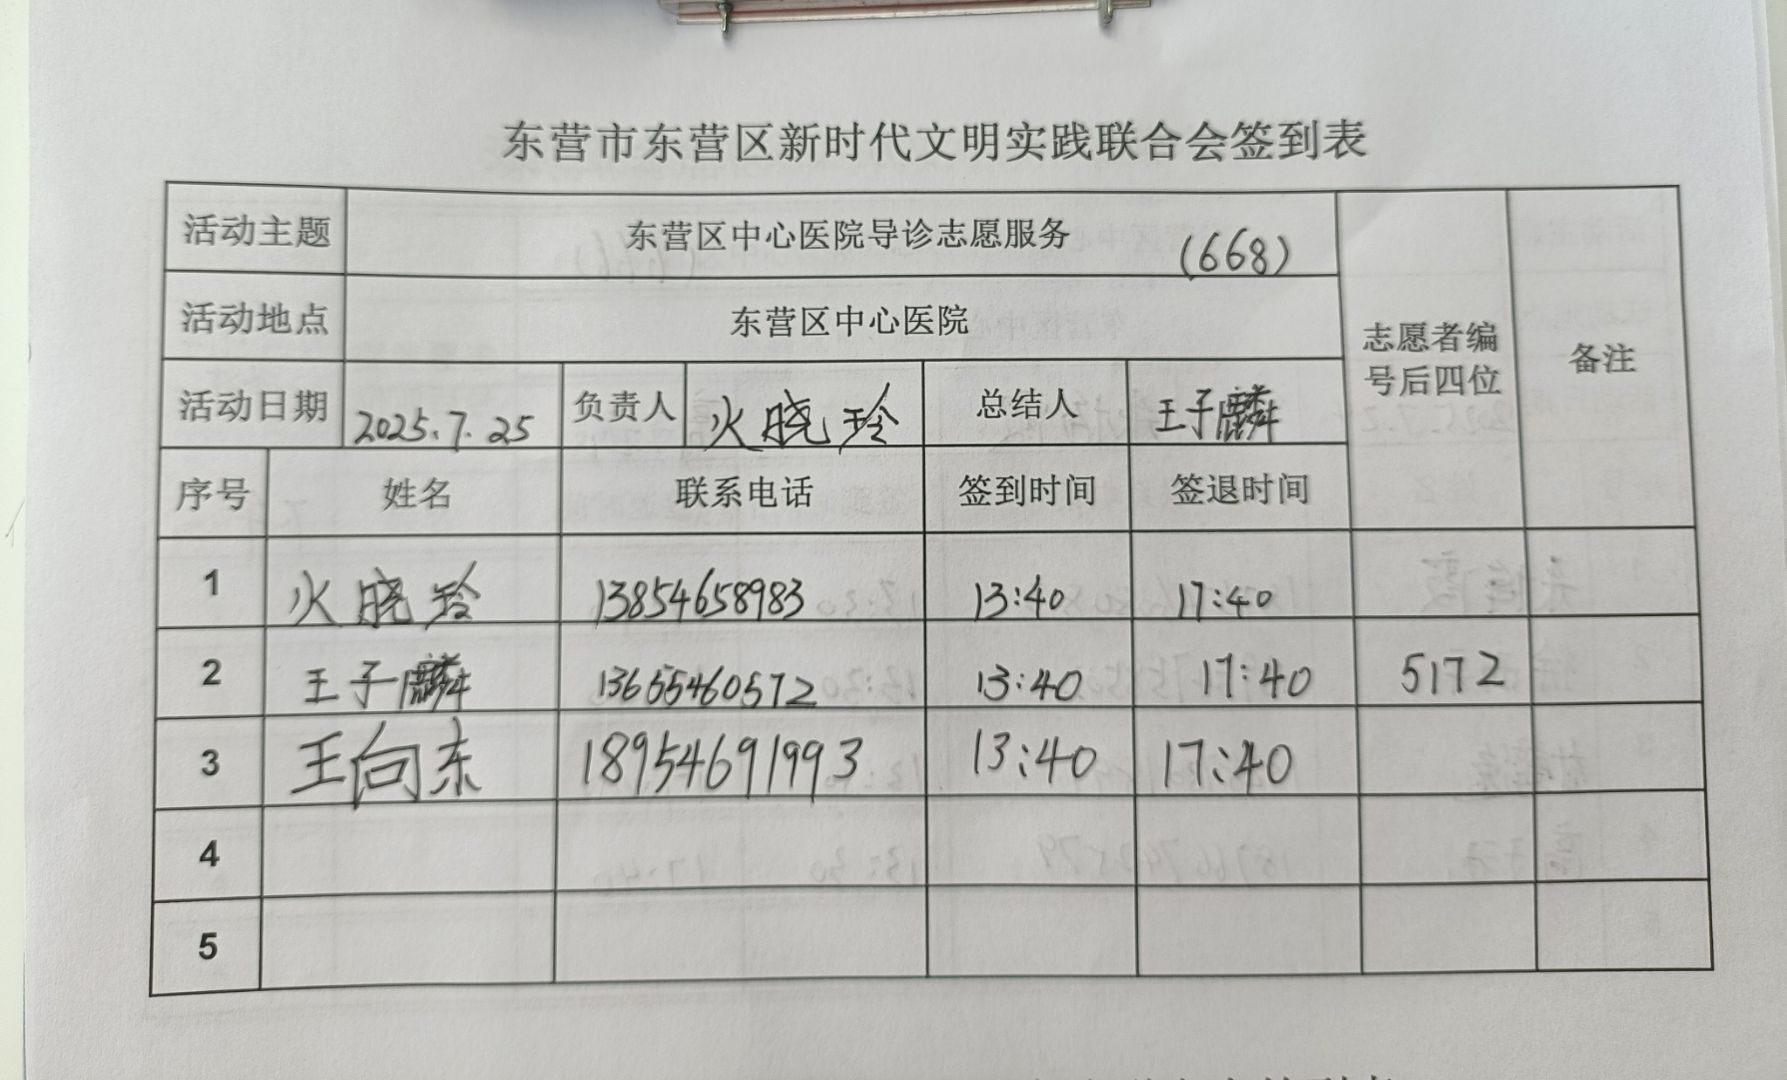 东营市东营区新时代文明实践联合会签到表
活动主题 东营区中心医院导诊志愿服务 (668)
活动地点 东营区中心医院
志愿者编号后四位 备注
活动日期 2025.7.25 负责人 火晓玲 总结人 王子麟
序号 姓名 联系电话 签到时间 签退时间
1 火晓玲 13854658983 13:40 17:40
2 王子麟 13655460572 13:40 17:40 5172
3 王向东 18954691993 13:40 17:40
4
5